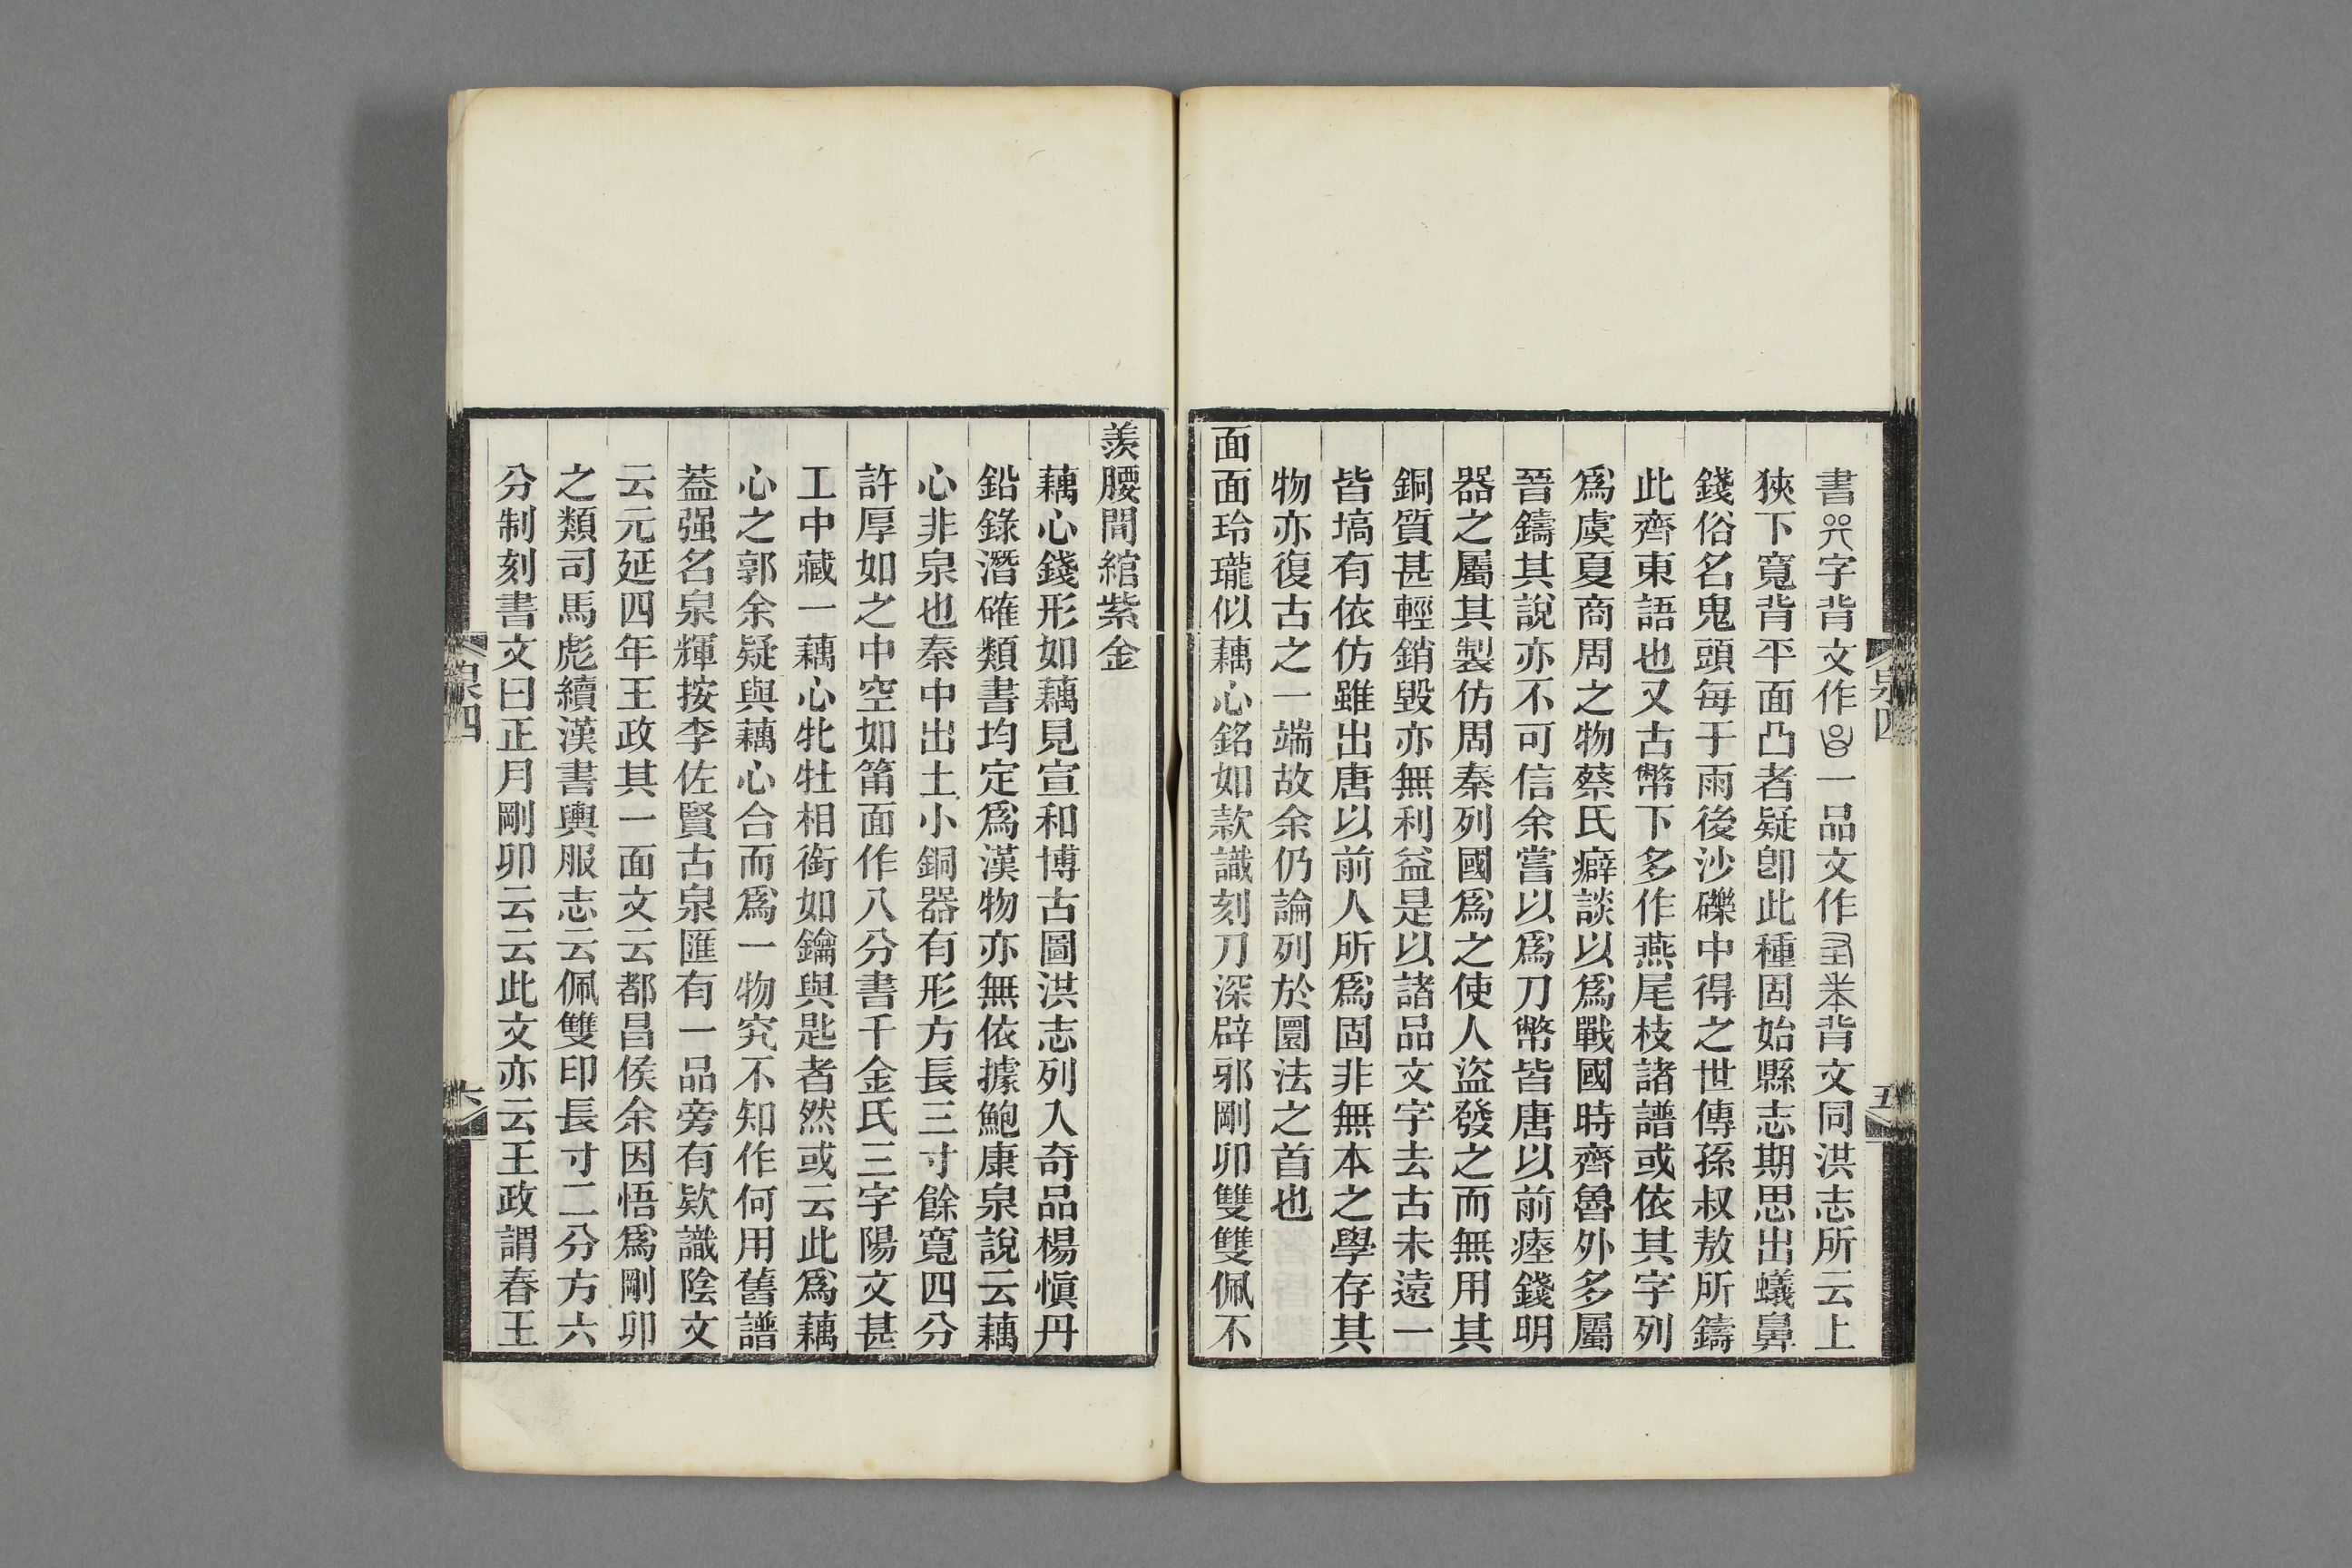 書字背文作一品文作背文同洪志所云上
狹下寬背平面凸者疑卽此種固始縣志期思出蟻鼻
錢俗名鬼頭每于雨後沙礫中得之世傳孫叔敖所鑄
此齊東語也又古幣下多作燕尾枝諸譜或依其字列
爲虞夏商周之物蔡氏癖談以爲戰國時齊魯外多屬
晉鑄其說亦不可信余嘗以爲刀幣皆唐以前瘞錢明
器之屬其製仿周秦列國爲之使人盜發之而無用其
銅質甚輕銷毀亦無利益是以諸品文字去古未遠一
皆塙有依仿雖出唐以前人所爲固非無本之學存其
物亦復古之一端故余仍論列於圜法之首也
面面玲瓏似藕心銘如款識刻刀深辟邪剛卯雙雙佩不
泉四
五
羨腰間綰紫金
藕心錢形如藕見宣和博古圖洪志列入奇品楊愼丹
鉛錄潛確類書均定爲漢物亦無依據鮑康泉說云藕
心非泉也秦中出土小銅器有形方長三寸餘寬四分
許厚如之中空如笛面作八分書千金氏三字陽文甚
工中藏一藕心牝牡相銜如鑰與匙者然或云此爲藕
心之郭余疑與藕心合而爲一物究不知作何用舊譜
蓋强名泉輝按李佐賢古泉匯有一品旁有欵識陰文
云元延四年王政其一面文云都昌侯余因悟爲剛卯
之類司馬彪續漢書輿服志云佩雙印長寸二分方六
分制刻書文曰正月剛卯云云此文亦云王政謂春王
泉四
六